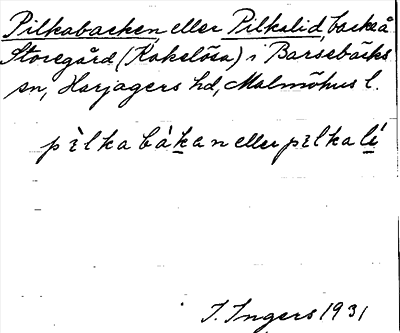 Pilkabacken eller Pilkalid, backe å
Storegård (Kakelösa) i Barsebäcks
sn, Harjagers hd, Malmöhus l.
pìlka bákan eller pìlka lí
I. Ingers 1931